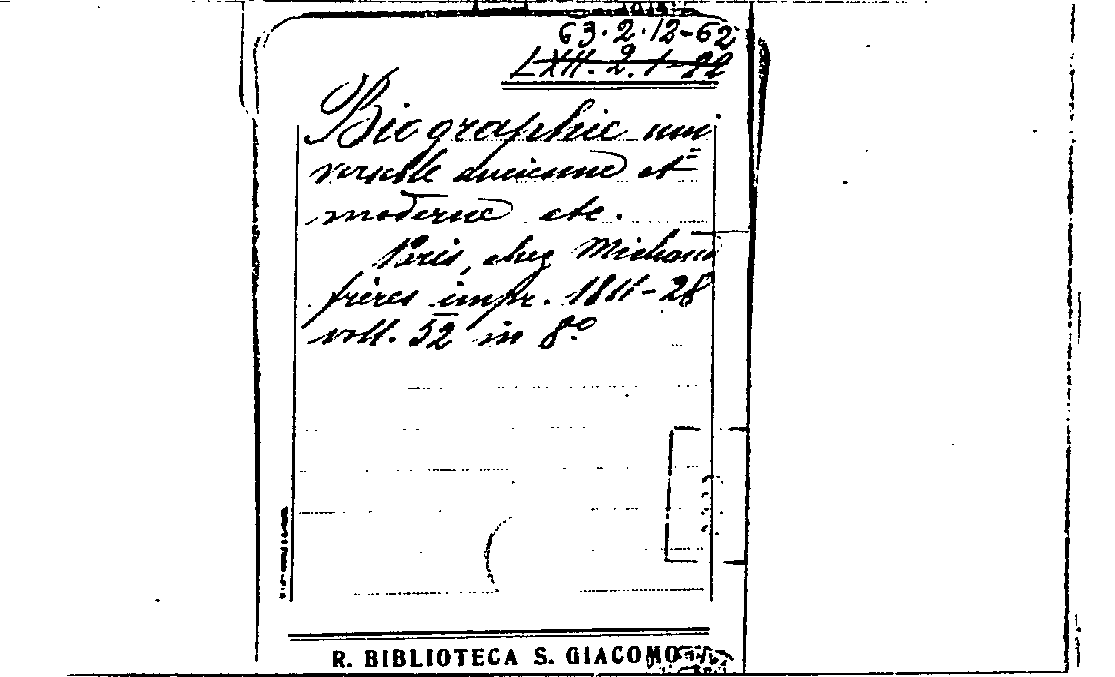 63.2.12-62
LXII. 2. 1-82
Biographie uni
verselle ancienne et
moderne etc.
Paris, chez Michaud
frères impr. 1811-28
voll. 52 in 8º
R. BIBLIOTECA S. GIACOMO